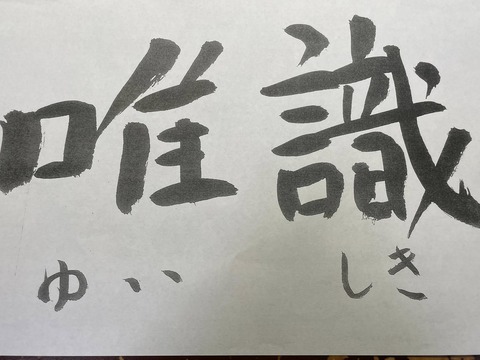 唯識
ゆいしき